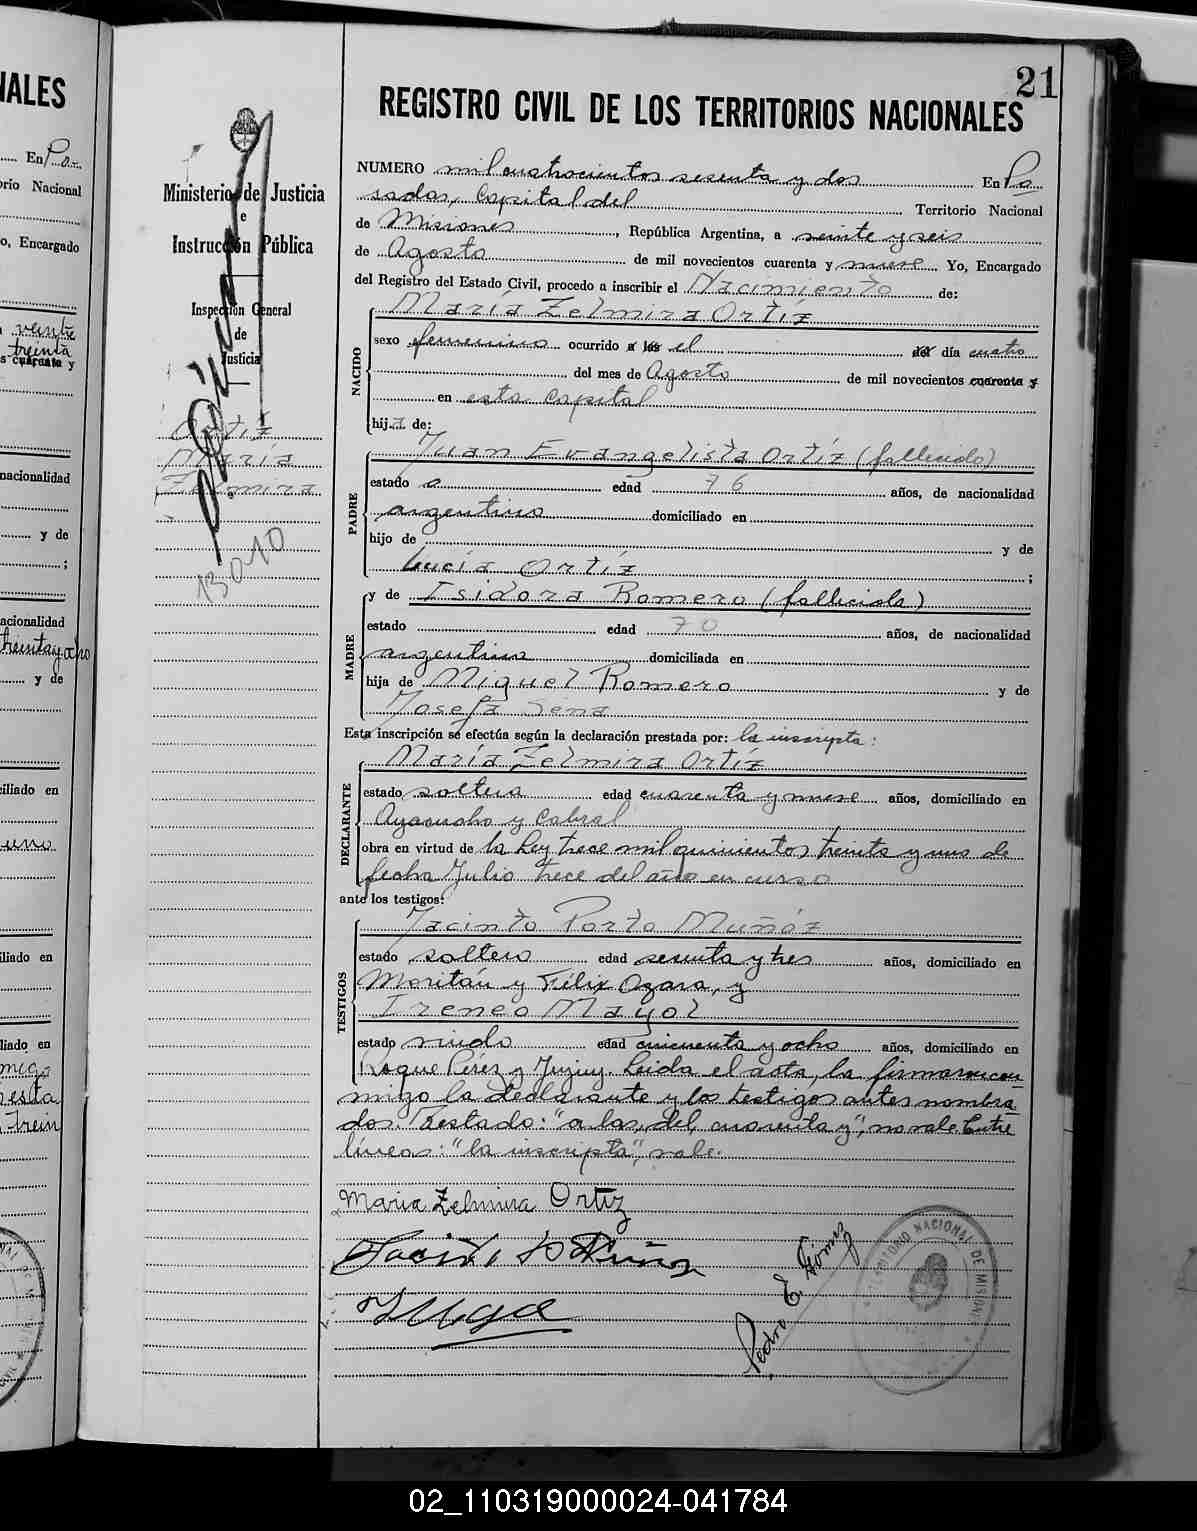 NALES
En Po
orio Nacional
o, Encargado
veinte
treinta
s cuarenta y
nacionalidad
y de
;
acionalidad
treinta y ocho
y de
iliado en
uno
iliado en
liado en
21
REGISTRO CIVIL DE LOS TERRITORIOS NACIONALES
Ministerio de Justicia
e
Instrucción Pública
Inspección General
de
Justicia
Ortíz
María
Zelmira
13010
NUMERO mil cuatrocientos sesenta y dos En Po
sadas, Capital del Territorio Nacional
de Misiones, República Argentina, a veinte y seis
de Agosto de mil novecientos cuarenta y nueve Yo, Encargado
del Registro del Estado Civil, procedo a inscribir el Nacimiento de:
NACIDO
María Zelmira Ortíz
sexo femenino ocurrido a las el del día cuatro
del mes de Agosto de mil novecientos cuarenta y
en esta Capital
hija de:
PADRE
Juan Evangelista Ortíz (fallecido)
estado a edad 76 años, de nacionalidad
argentino domiciliado en
hijo de y de
Lucía Ortíz ;
MADRE
y de Isidora Romero (fallecida)
estado edad 70 años, de nacionalidad
argentina domiciliada en
hija de Miguel Romero y de
Josefa Sena
Esta inscripción se efectúa según la declaración prestada por: la inscripta:
DECLARANTE
María Zelmira Ortíz
estado soltera edad cuarenta y nueve años, domiciliado en
Ayacucho y Cabral
obra en virtud de la Ley trece mil quinientos treinta y uno de
fecha Julio trece del año en curso
ante los testigos:
TESTIGOS
Jacinto Porto Muñóz
estado soltero edad sesenta y tres años, domiciliado en
Moritán y Félix Azara, y
Ireneo Mayol
estado viudo edad cincuenta y ocho años, domiciliado en
Roque Pérez y Jujuy. Leida el acta, la firmaron con
migo la declarante y los testigos antes nombra
dos. Testado: "a las, del, cuarenta y", no vale. Entre
líneas: "la inscripta", vale.
Maria Zelmira Ortiz
Pedro E. Gómez
TERRITORIO NACIONAL DE MISIONES
02_110319000024-041784